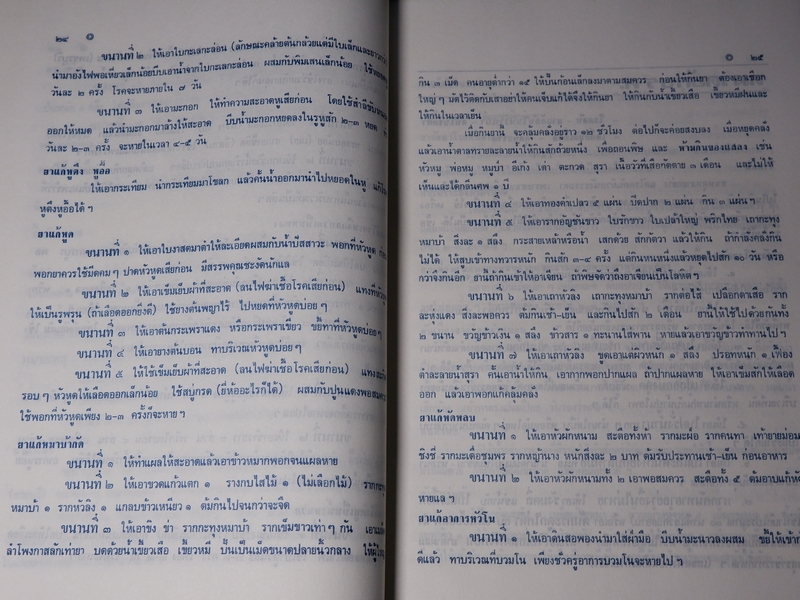 ๒๔
ขนานที่ ๒ ให้เอาใบกะเลกะล่อน (ลักษณะคล้ายต้นกล้วยแต่มีใบเล็กและยาว
นำมาอังไฟพอเหี่ยวเล็กน้อยบีบเอาน้ำจากใบกะเลกะล่อน ผสมกับพิมเสนเล็กน้อย
วันละ ๒ ครั้ง โรคจะหายภายใน ๗ วัน
ขนานที่ ๓ ให้เอามะกอก ให้ทำความสะอาดหูเสียก่อน โดยใช้สำลีซับหนอง
ออกให้หมด แล้วนำมะกอกมาล้างให้สะอาด บีบน้ำมะกอกหยดลงในรูหูสัก ๒-๓ หยด
วันละ ๒-๓ ครั้ง จะหายในเวลา ๔-๕ วัน
ยาแก้หูตึง หูอื้อ
ให้เอากระเทียม นำกระเทียมมาโขลก แล้วคั้นน้ำออกมานำไปหยอดในหู แก้โรค
หูตึงหูอื้อได้ ฯ
ยาแก้หูด
ขนานที่ ๑ ให้เอาใบงาสดมาตำให้ละเอียดผสมกับน้ำปัสสาวะ พอกที่หัวหูด ก่อน
พอกยาควรใช้มีดคม ๆ ปาดหัวหูดเสียก่อน มีสรรพคุณชะงัดนักแล
ขนานที่ ๒ ให้เอาเข็มเย็บผ้าที่สะอาด (ลนไฟฆ่าเชื้อโรคเสียก่อน) แทงที่หัวหูด
ให้เป็นรูพรุน (ถ้าเลือดออกยิ่งดี) ใช้ยางต้นพญาไร้ ไปหยดที่หัวหูดบ่อย ๆ
ขนานที่ ๓ ให้เอาต้นกระเพราแดง หรือกระเพราเขียว ขยี้ทาที่หัวหูดบ่อย ๆ
ขนานที่ ๔ ให้เอายางต้นบอน ทาบริเวณหัวหูดบ่อย ๆ
ขนานที่ ๕ ให้ใช้เข็มเย็บผ้าที่สะอาด (ลนไฟฆ่าเชื้อโรคเสียก่อน) แทง
รอบ ๆ หัวหูดให้เลือดออกเล็กน้อย ใช้สบู่กรด (ยี่ห้ออะไรก็ได้) ผสมกับปูนแดงพอสมควร
ใช้พอกที่หัวหูดเพียง ๒-๓ ครั้งก็จะหาย ฯ
ยาแก้หมาบ้ากัด
ขนานที่ ๑ ให้ทำแผลให้สะอาดแล้วเอาข้าวหมากพอกจนแผลหาย
ขนานที่ ๒ ให้เอาขวดแก้วแตก ๑ รางกบไสไม้ ๑ (ไม่เลือกไม้)
หมาบ้า ๑ รากหัวลิง ๑ แกลบข้าวเหนียว ๑ ต้มกินไปจนกว่าจะจืด
ขนานที่ ๓ ให้เอาขิง ข่า รากกะทุงหมาบ้า รากเข็มขาวเท่า ๆ กัน
ลำโพงกาสลักเท่ายา บดด้วยน้ำเขี้ยวเสือ เขี้ยวหมี ปั้นเป็นเม็ดขนาดปลายนิ้วกลาง
๒๕
กิน ๓ เม็ด คนอายุต่ำกว่า ๑๕ ให้ปั้นก้อนเล็กลงมาตามสมควร ก่อนให้กินยา ต้องเอาเชือก
ใหญ่ ๆ มัดไว้ติดกับเสาอย่าให้คนเจ็บแก้ได้จึงให้กินยา ให้กินกับน้ำเขี้ยวเสือ เขี้ยวหมีฝนและ
ให้กินในเวลาเย็น
เมื่อกินยานี้ จะคลุ้มคลั่งอยู่ราว ๑๒ ชั่วโมง ต่อไปก็จะค่อยสงบลง เมื่อหยุดคลั่ง
แล้วเอาน้ำตาลทรายละลายน้ำให้กินสักถ้วยหนึ่ง เพื่อถอนพิษ และ ห้ามกินของแสลง เช่น
หัวหมู พ่อหมู หมูลาย อีเก้ง เต่า ตะกวด สุรา เนื้อวัวที่เสือกัดตาย ๓ เดือน และไม่ให้
เห็นและได้กลิ่นศพ ๑ ปี
ขนานที่ ๔ ให้เอาทองคำเปลว ๕ แผ่น บีดปาก ๒ แผ่น กิน ๓ แผ่น ฯ
ขนานที่ ๕ ให้เอารากอัญชันขาว ใบรักขาว ใบเปล้าใหญ่ พริกไทย เถากะทุง
หมาบ้า สิ่งละ ๑ สลึง กระสายเหล้าหรือน้ำ เสกด้วย สักกัตวา แล้วให้กิน ถ้ากำลังคลั่งกิน
ไม่ได้ ให้สูบเข้าทางทวารหนัก กินสัก ๓-๔ ครั้ง แต่กินหนหนึ่งแล้วหยุดไปสัก ๑๐ วัน หรือ
กว่าจึงกินอีก ยานี้ถ้ากินเข้าให้อาเจียน ถ้าพิษจัดว่าถึงอาเจียนเป็นโลหิต ฯ
ขนานที่ ๖ ให้เอาเถาหัวลิง เถากะทุงหมาบ้า รากต่อไส้ เปลือกตาเสือ ราก
ละหุ่งแดง สิ่งละพอควร ต้มกินเช้า-เย็น และกินไปสัก ๒ เดือน ยานี้ให้ใช้ไปด้วยกันทั้ง
๒ ขนาน ขวัญข้าวเงิน ๑ สลึง ข้าวสาร ๑ ทะนานใส่พาน หายแล้วเอาขวัญข้าวทำทานไป ฯ
ขนานที่ ๗ ให้เอาเถาหัวลิง ขูดเอาแต่ผิวหนัก ๑ สลึง ปรอทหนัก ๑ เฟื้อง
ตำละลายน้ำสุรา คั้นเอาน้ำให้กิน เอากากพอกปากแผล ถ้าปากแผลหาย ให้เอาเข็มสักให้เลือด
ออก แล้วเอาพอกแก้คลุ้มคลั่ง
ยาแก้ดัดลบ
ขนานที่ ๑ ให้เอาหัวผักหนาม สะเดาทั้งห้า รากมะเฝ่อ รากคนทา เท้ายายม่อม
ชิงชี่ รากมะเดื่อชุมพร รากหญ้านาง หนักสิ่งละ ๒ บาท ต้มรับประทานเช้า-เย็น ก่อนอาหาร
ขนานที่ ๒ ให้เอาหัวผักหนามทั้ง ๒ เอาพอสมควร สะเดาทั้ง ๕ ต้มอาบแก้
หายแล ฯ
ยาแก้อาการหัวโน
ขนานที่ ๑ ให้เอาดินสอพองนำมาใส่ฝ่ามือ บีบน้ำมะนาวลงผสม ขยี้ให้เข้า
ดีแล้ว ทาบริเวณที่บวมโน เพียงชั่วครู่อาการบวมโนจะหายไป ฯ